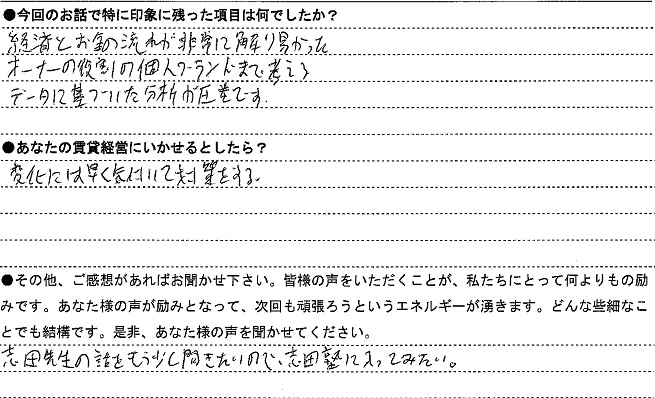 ●今回のお話で特に印象に残った項目は何でしたか？
経済とお金の流れが非常に解り易かった
オーナーの役割の個人ブランドまで考える
データに基づいた分析が圧巻です。
●あなたの賃貸経営にいかせるとしたら？
変化には早く気付いて対策をする。
●その他、ご感想があればお聞かせ下さい。皆様の声をいただくことが、私たちにとって何よりもの励
みです。あなた様の声が励みとなって、次回も頑張ろうというエネルギーが湧きます。どんな些細なこ
とでも結構です。是非、あなた様の声を聞かせてください。
志田先生の話をもう少し聞きたいので、志田塾に入ってみたい。